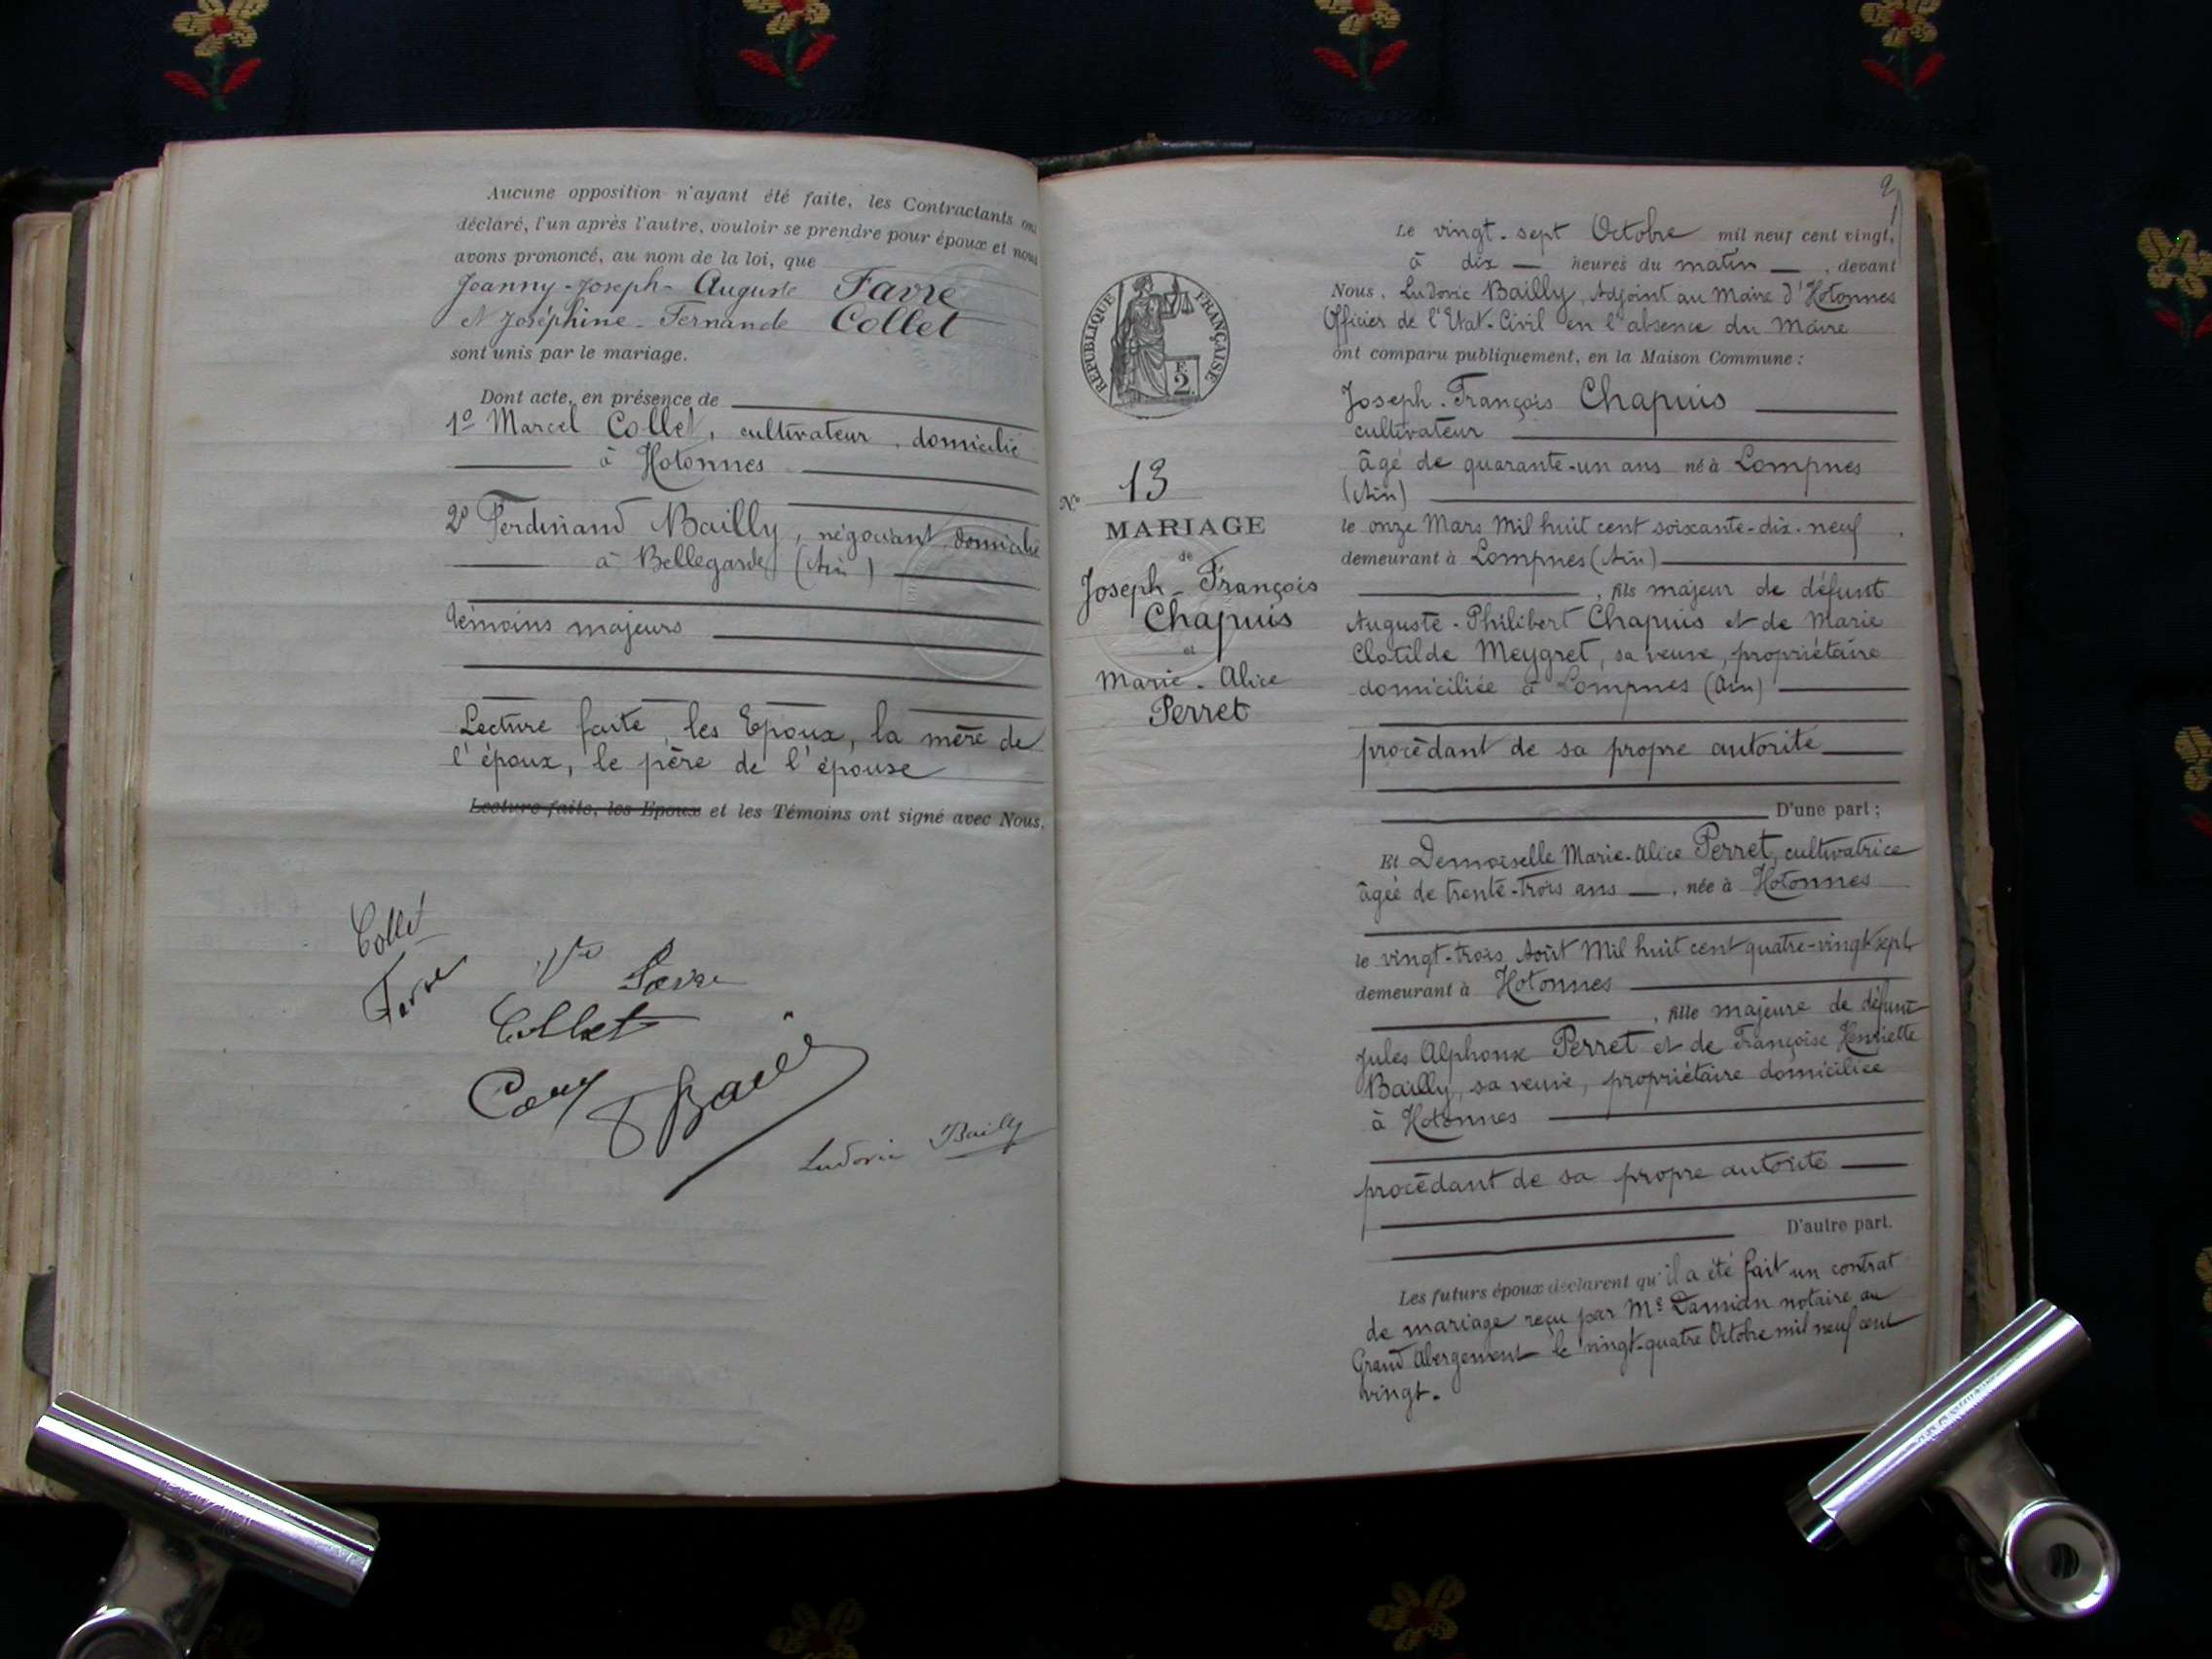 Aucune opposition n'ayant été faite, les Contractants ont
déclaré, l'un après l'autre, vouloir se prendre pour époux et nous
avons prononcé, au nom de la loi, que
Joanny-Joseph-Auguste Favre
et Joséphine-Fernande Collet
sont unis par le mariage.
Dont acte, en présence de
1º Marcel Collet, cultivateur, domicilié
à Hotonnes
2º Ferdinand Bailly, négociant, domicilié
à Bellegarde (Ain)
témoins majeurs
Lecture faite, les Epoux, la mère de
l'époux, le père de l'épouse
Lecture faite, les Epoux et les Témoins ont signé avec Nous.
Collet
Favre
Vve Favre
Collet
Ludovic Bailly
2
RÉPUBLIQUE FRANÇAISE
F. 2
Nº 13
MARIAGE
de
Joseph-François
Chapuis
et
Marie-Alice
Perret
Le vingt-sept Octobre mil neuf cent vingt,
à dix heures du matin, devant
Nous, Ludovic Bailly, Adjoint au Maire d'Hotonnes
Officier de l'Etat-Civil en l'absence du Maire
ont comparu publiquement, en la Maison Commune :
Joseph-François Chapuis
cultivateur
âgé de quarante-un ans né à Lompnes
(Ain)
le onze Mars Mil huit cent soixante-dix-neuf
demeurant à Lompnes (Ain)
, fils majeur de défunt
Auguste-Philibert Chapuis et de Marie
Clotilde Meygret, sa veuve, propriétaire
domiciliée à Lompnes (Ain)
procédant de sa propre autorité
D'une part ;
Et Demoiselle Marie-Alice Perret, cultivatrice
âgée de trente-trois ans, née à Hotonnes
le vingt-trois Août Mil huit cent quatre-vingt-sept
demeurant à Hotonnes
, fille majeure de défunt
Jules Alphonse Perret et de Françoise Henriette
Bailly, sa veuve, propriétaire domiciliée
à Hotonnes
procédant de sa propre autorité
D'autre part.
Les futurs époux déclarent qu'il a été fait un contrat
de mariage reçu par Me Damian notaire au
Grand Abergement le vingt-quatre Octobre mil neuf cent
vingt.